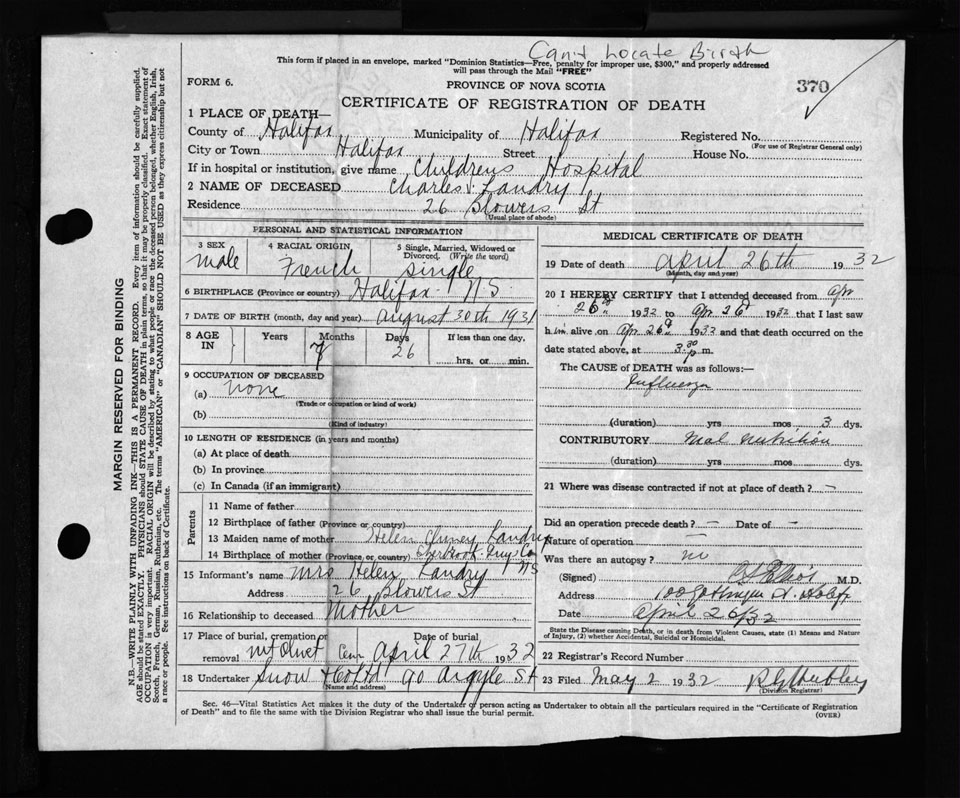 Can't Locate Birth
This form if placed in an envelope, marked "Dominion Statistics—Free, penalty for improper use, $300," and properly addressed
will pass through the Mail "FREE"
FORM 6.
PROVINCE OF NOVA SCOTIA
370
CERTIFICATE OF REGISTRATION OF DEATH
1 PLACE OF DEATH—
County of Halifax Municipality of Halifax Registered No.
(For use of Registrar General only)
City or Town Halifax Street House No.
If in hospital or institution, give name Childrens Hospital
2 NAME OF DECEASED Charles Landry
Residence 26 Blowers St
(Usual place of abode)
PERSONAL AND STATISTICAL INFORMATION
3 SEX male
4 RACIAL ORIGIN French
5 Single, Married, Widowed or Divorced. (Write the word) single
6 BIRTHPLACE (Province or country) Halifax NS
7 DATE OF BIRTH (month, day and year) August 30th 1931
8 AGE IN Years Months 7 Days 26 If less than one day, hrs. or min.
9 OCCUPATION OF DECEASED
(a) none
(Trade or occupation or kind of work)
(b)
(Kind of industry)
10 LENGTH OF RESIDENCE (in years and months)
(a) At place of death
(b) In province
(c) In Canada (if an immigrant)
Parents
11 Name of father
12 Birthplace of father (Province or country)
13 Maiden name of mother Helen Landry
14 Birthplace of mother (Province or country) Sherbrook Guys Co NS
15 Informant's name Mrs Helen Landry
Address 26 Blowers St
16 Relationship to deceased Mother
17 Place of burial, cremation or removal Mt Olivet Cem Date of burial April 27th 1932
18 Undertaker Snow 90 Argyle St
(Name and address)
MEDICAL CERTIFICATE OF DEATH
19 Date of death April 26th 1932
(Month, day and year)
20 I HEREBY CERTIFY that I attended deceased from Apr
26th 1932 to Apr 26th 1932 that I last saw
him alive on Apr 26th 1932 and that death occurred on the
date stated above, at 3.30 p.m.
The CAUSE of DEATH was as follows:—
Influenza
(duration) yrs mos 3 dys.
CONTRIBUTORY Mal nutrition
(duration) yrs mos dys.
21 Where was disease contracted if not at place of death? —
Did an operation precede death? — Date of —
Nature of operation —
Was there an autopsy? no
(Signed) M.D.
Address 100 Gottingen St. Halifx
Date April 26/32
State the Disease causing Death, or in death from Violent Causes, state (1) Means and Nature
of Injury, (2) whether Accidental, Suicidal or Homicidal.
22 Registrar's Record Number
23 Filed May 2 1932
(Division Registrar)
Sec. 46—Vital Statistics Act makes it the duty of the Undertaker or person acting as Undertaker to obtain all the particulars required in the "Certificate of Registration
of Death" and to file the same with the Division Registrar who shall issue the burial permit. (OVER)
MARGIN RESERVED FOR BINDING
N.B.—WRITE PLAINLY WITH UNFADING INK—THIS IS A PERMANENT RECORD. Every item of information should be carefully supplied.
AGE should be stated EXACTLY. PHYSICIANS should STATE CAUSE OF DEATH in plain terms, so that it may be properly classified. Exact statement of
OCCUPATION is very important. RACIAL ORIGIN will be described by stating to what people or race the deceased person belonged, whether English, Irish,
Scotch, French, German, Russian, Ruthenian, etc. The terms "AMERICAN" or "CANADIAN" SHOULD NOT BE USED as they express citizenship but not
a race or people. See instructions on back of Certificate.